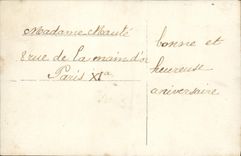 Madame Mauté
2 rue de la main d'or
Paris XIe
bonne et
heureuse
aniversaire